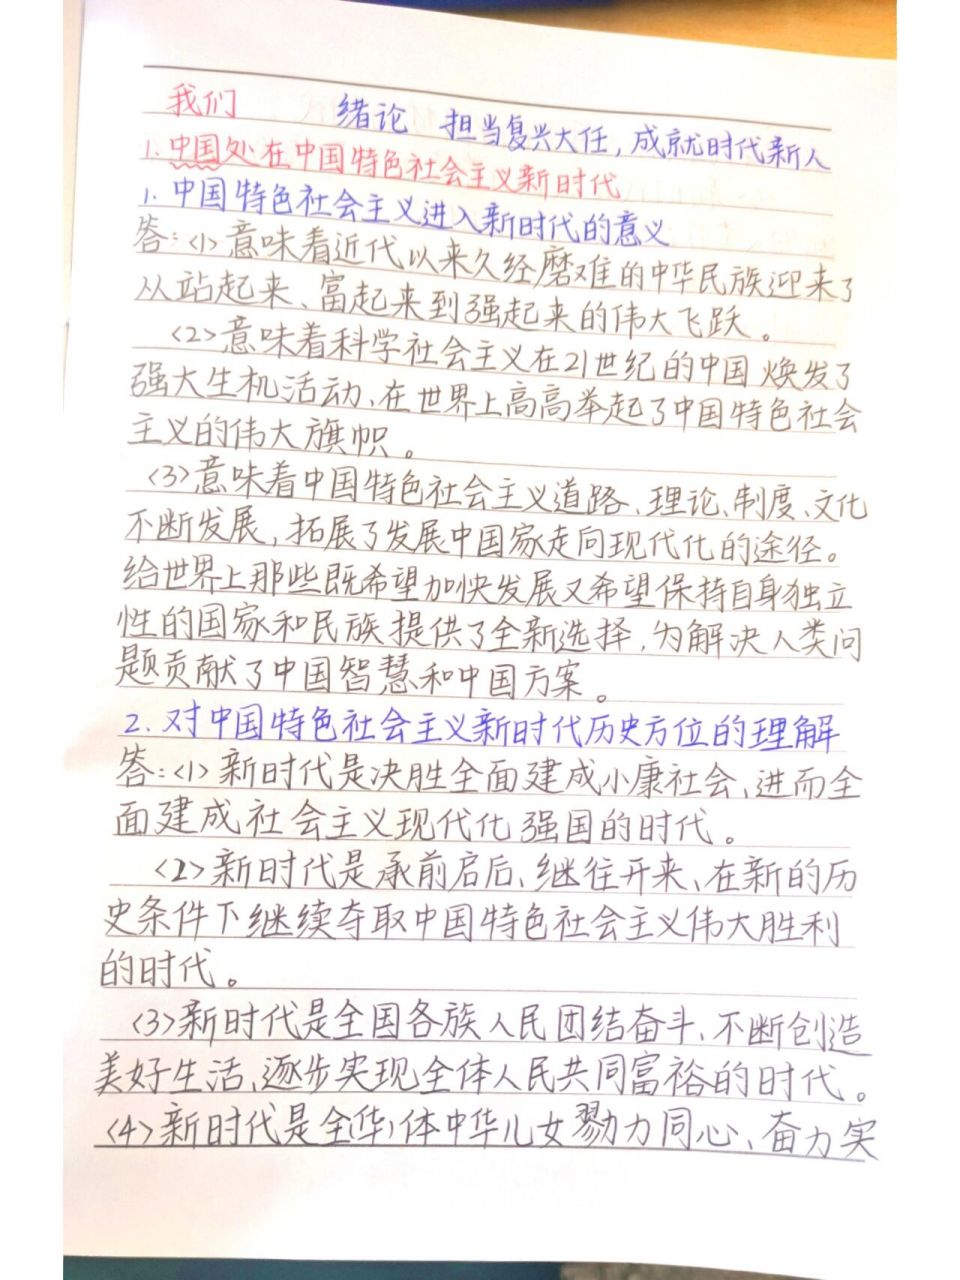 我们 绪论 担当复兴大任,成就时代新人
1.中国处在中国特色社会主义新时代
1.中国特色社会主义进入新时代的意义
答:<1>意味着近代以来久经磨难的中华民族迎来了
从站起来、富起来到强起来的伟大飞跃。
<2>意味着科学社会主义在21世纪的中国焕发了
强大生机活动、在世界上高高举起了中国特色社会
主义的伟大旗帜。
<3>意味着中国特色社会主义道路、理论、制度、文化
不断发展,拓展了发展中国家走向现代化的途径。
给世界上那些既希望加快发展又希望保持自身独立
性的国家和民族提供了全新选择,为解决人类问
题贡献了中国智慧和中国方案。
2.对中国特色社会主义新时代历史方位的理解
答:<1>新时代是决胜全面建成小康社会、进而全
面建成社会主义现代化强国的时代。
<2>新时代是承前启后、继往开来、在新的历
史条件下继续夺取中国特色社会主义伟大胜利
的时代。
<3>新时代是全国各族人民团结奋斗、不断创造
美好生活、逐步实现全体人民共同富裕的时代。
<4>新时代是全体中华儿女勠力同心、奋力实